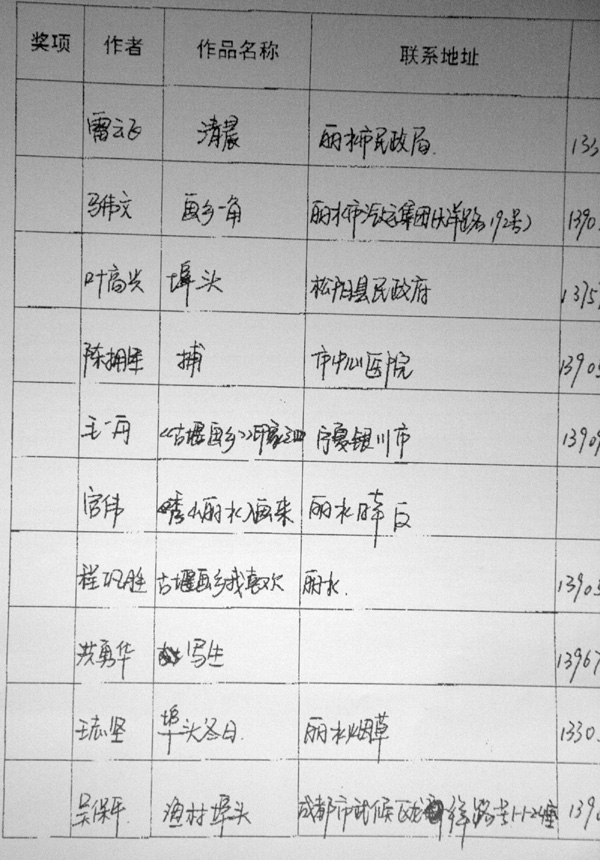 奖项 作者 作品名称 联系地址
雷云飞 清晨 丽水市民政局 133
马伟文 画乡一角 丽水市汽运集团(大洋路192号) 1390
叶高兴 埠头 松阳县民政府 1375
陈拥军 捕 市中心医院 1390
王一丹 《古堰画乡》印象之四 宁夏银川市 1390
官伟 《秀山丽水》画来 丽水
程巩胜 古堰画乡我喜欢 丽水. 1390
洪勇华 写生 1396
王志坚 埠头冬日. 丽水烟草 1330
吴保平 渔村埠头 成都市武候区龙 祥路 1-1-2 139